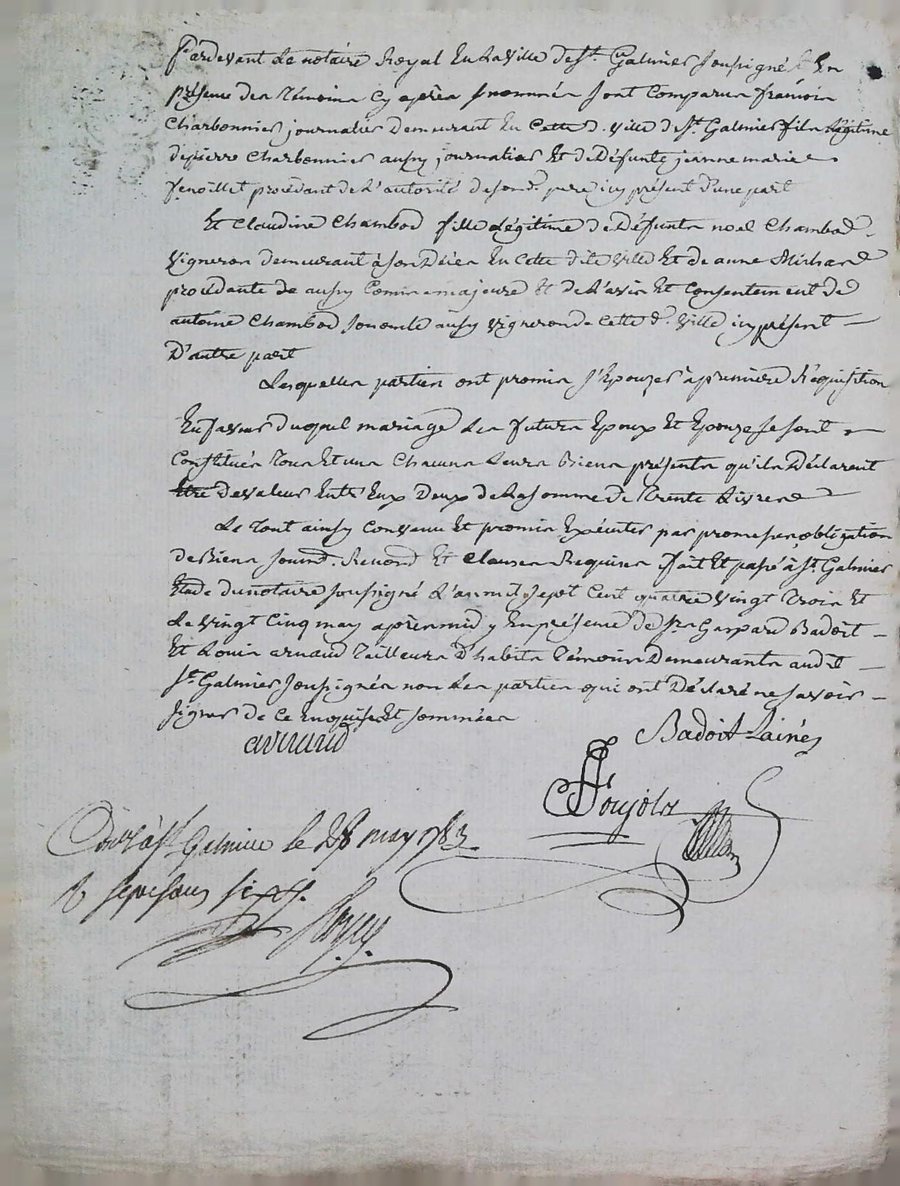 Pardevant Le notaire Royal En La Ville de St. Galmier soussigné & En
présence des Témoins Cy après Nommés sont Comparus françois
Charbonnier journalier Demeurant En Cette d. ville de St. Galmier fils Légitime
de pierre Charbonnier aussy journalier Et de Défunte jeanne marie
fenoillet procédant de L'autorité de sond. pere icy présent d'une part
Et Claudine Chambod fille Légitime de Défunt noel Chambod
Vigneron demeurant à son Décès En Cette dite Ville Et de anne Michard
procédante de aussy Comme majeure Et de L'avis Et Consentement de
antoine Chambod son oncle aussy Vigneron de Cette d. Ville icy présent
D'autre part
Lesquelles parties ont promis s'Epouzer à première Réquisition
En faveur duquel mariage Les futurs Epoux Et Epouze se sont
Constitués Tous Et uns Chacuns Leurs Biens présents qu'ils Déclarent
Etre de valeur Entr'Eux Deux de La somme de Trente Livres
Le Tout ainsy Convenu Et promis Exécuter par promesses, obligation
de Biens soumd. Renond. Et Clauses Requises fait Et passé à St. Galmier
Etude du notaire soussigné L'an mil sept Cent quatre Vingt Trois Et
Le Vingt Cinq may après midy En présence de Sr. Gaspard Badoit
Et Louis arnaud Tailleurs D'habits Témoins Demeurants audit
St. Galmier soussignés non Les parties qui ont Déclaré ne savoir
signer de Ce Enquises Et sommées
Badoit Lainé
à St. Galmier le 28 may 1783
sept sous six d.